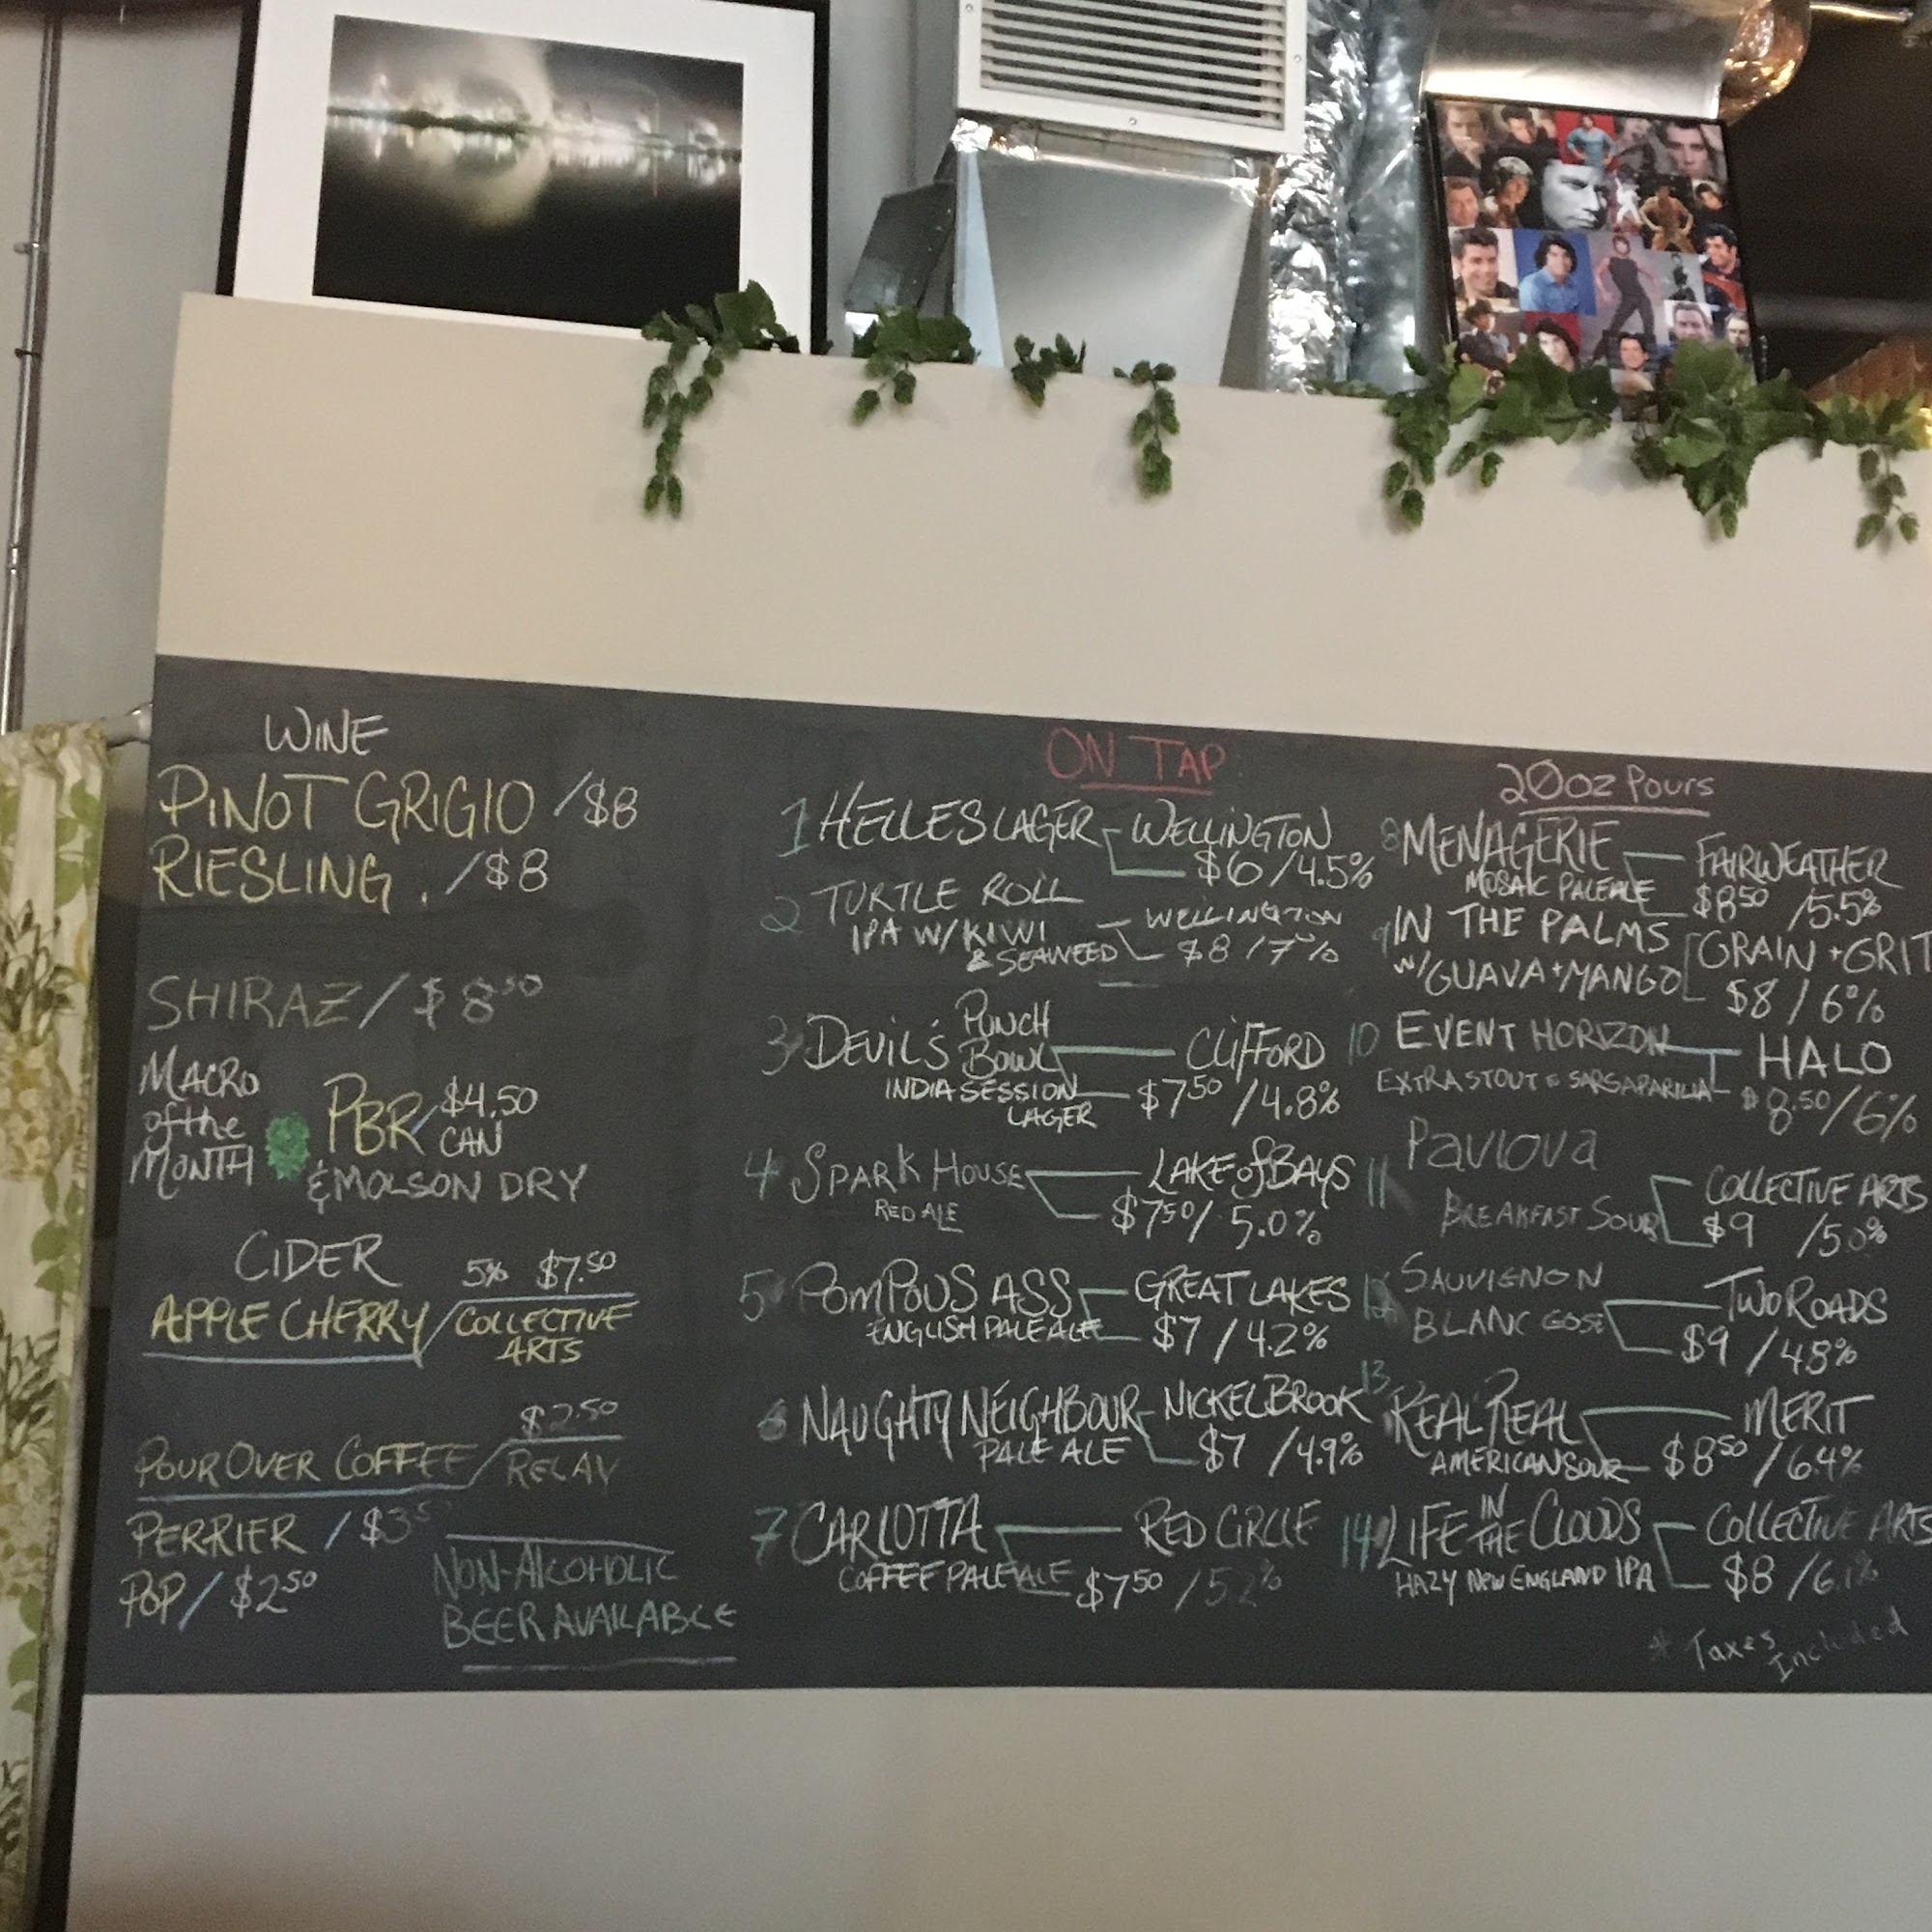 WINE
PINOT GRIGIO /$8
RIESLING . /$8
SHIRAZ / $8⁵⁰
MACRO
of the
MONTH
PBR/ $4.50
CAN
& MOLSON DRY
CIDER
5% $7.⁵⁰
APPLE CHERRY / COLLECTIVE
ARTS
$2.⁵⁰
POUR OVER COFFEE / RELAY
PERRIER / $3⁵
POP / $2⁵⁰
NON-ALCOHOLIC
BEER AVAILABLE
ON TAP
1 HELLES LAGER WELLINGTON
$6 /4.5%
2 TURTLE ROLL
IPA W/ KIWI
& SEAWEED
WELLINGTON
$8 / 7%
3 DEVIL'S PUNCH
BOWL
INDIA SESSION
LAGER
CLIFFORD
$7⁵⁰ /4.8%
4 SPARK HOUSE
RED ALE
LAKE of BAYS
$7⁵⁰/ 5.0%
5 POMPOUS ASS
ENGLISH PALE ALE
GREAT LAKES
$7 / 4.2%
6 NAUGHTY NEIGHBOUR
PALE ALE
NICKEL BROOK
$7 /4.9%
7 CARLOTTA
COFFEE PALE ALE
RED CIRCLE
$7⁵⁰ /5.2%
20oz Pours
8 MENAGERIE
MOSAIC PALE ALE
FAIRWEATHER
$8⁵⁰ /5.5%
9 IN THE PALMS
W/ GUAVA + MANGO
GRAIN + GRIT
$8 / 6%
10 EVENT HORIZON
EXTRA STOUT SARSAPARILIA
HALO
$8.⁵⁰/6%
11 Pavlova
BREAKFAST SOUR
COLLECTIVE ARTS
$9 /5.0%
12 SAUVIGNON
BLANC GOSE
TWO ROADS
$9 /4.8%
13 REAL REAL
AMERICAN SOUR
MERIT
$8⁵⁰ /6.4%
14 LIFE IN
THE CLOUDS
HAZY NEW ENGLAND IPA
COLLECTIVE ARTS
$8 /6.1%
* Taxes
Included